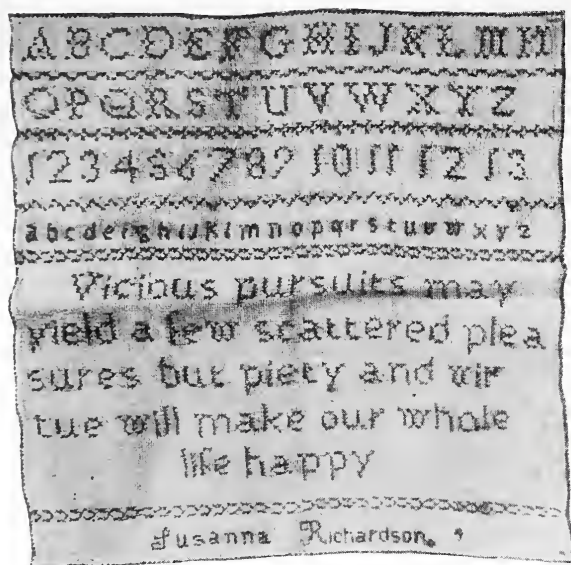 A B C D E F G H I J K L M N
O P Q R S T U V W X Y Z
1 2 3 4 5 6 7 8 9 10 11 12 13
a b c d e f g h i j k l m n o p q r s t u v w x y z
Vicious pursuits may
yield a few scattered plea
sures but piety and vir
tue will make our whole
life happy
Susanna Richardson.